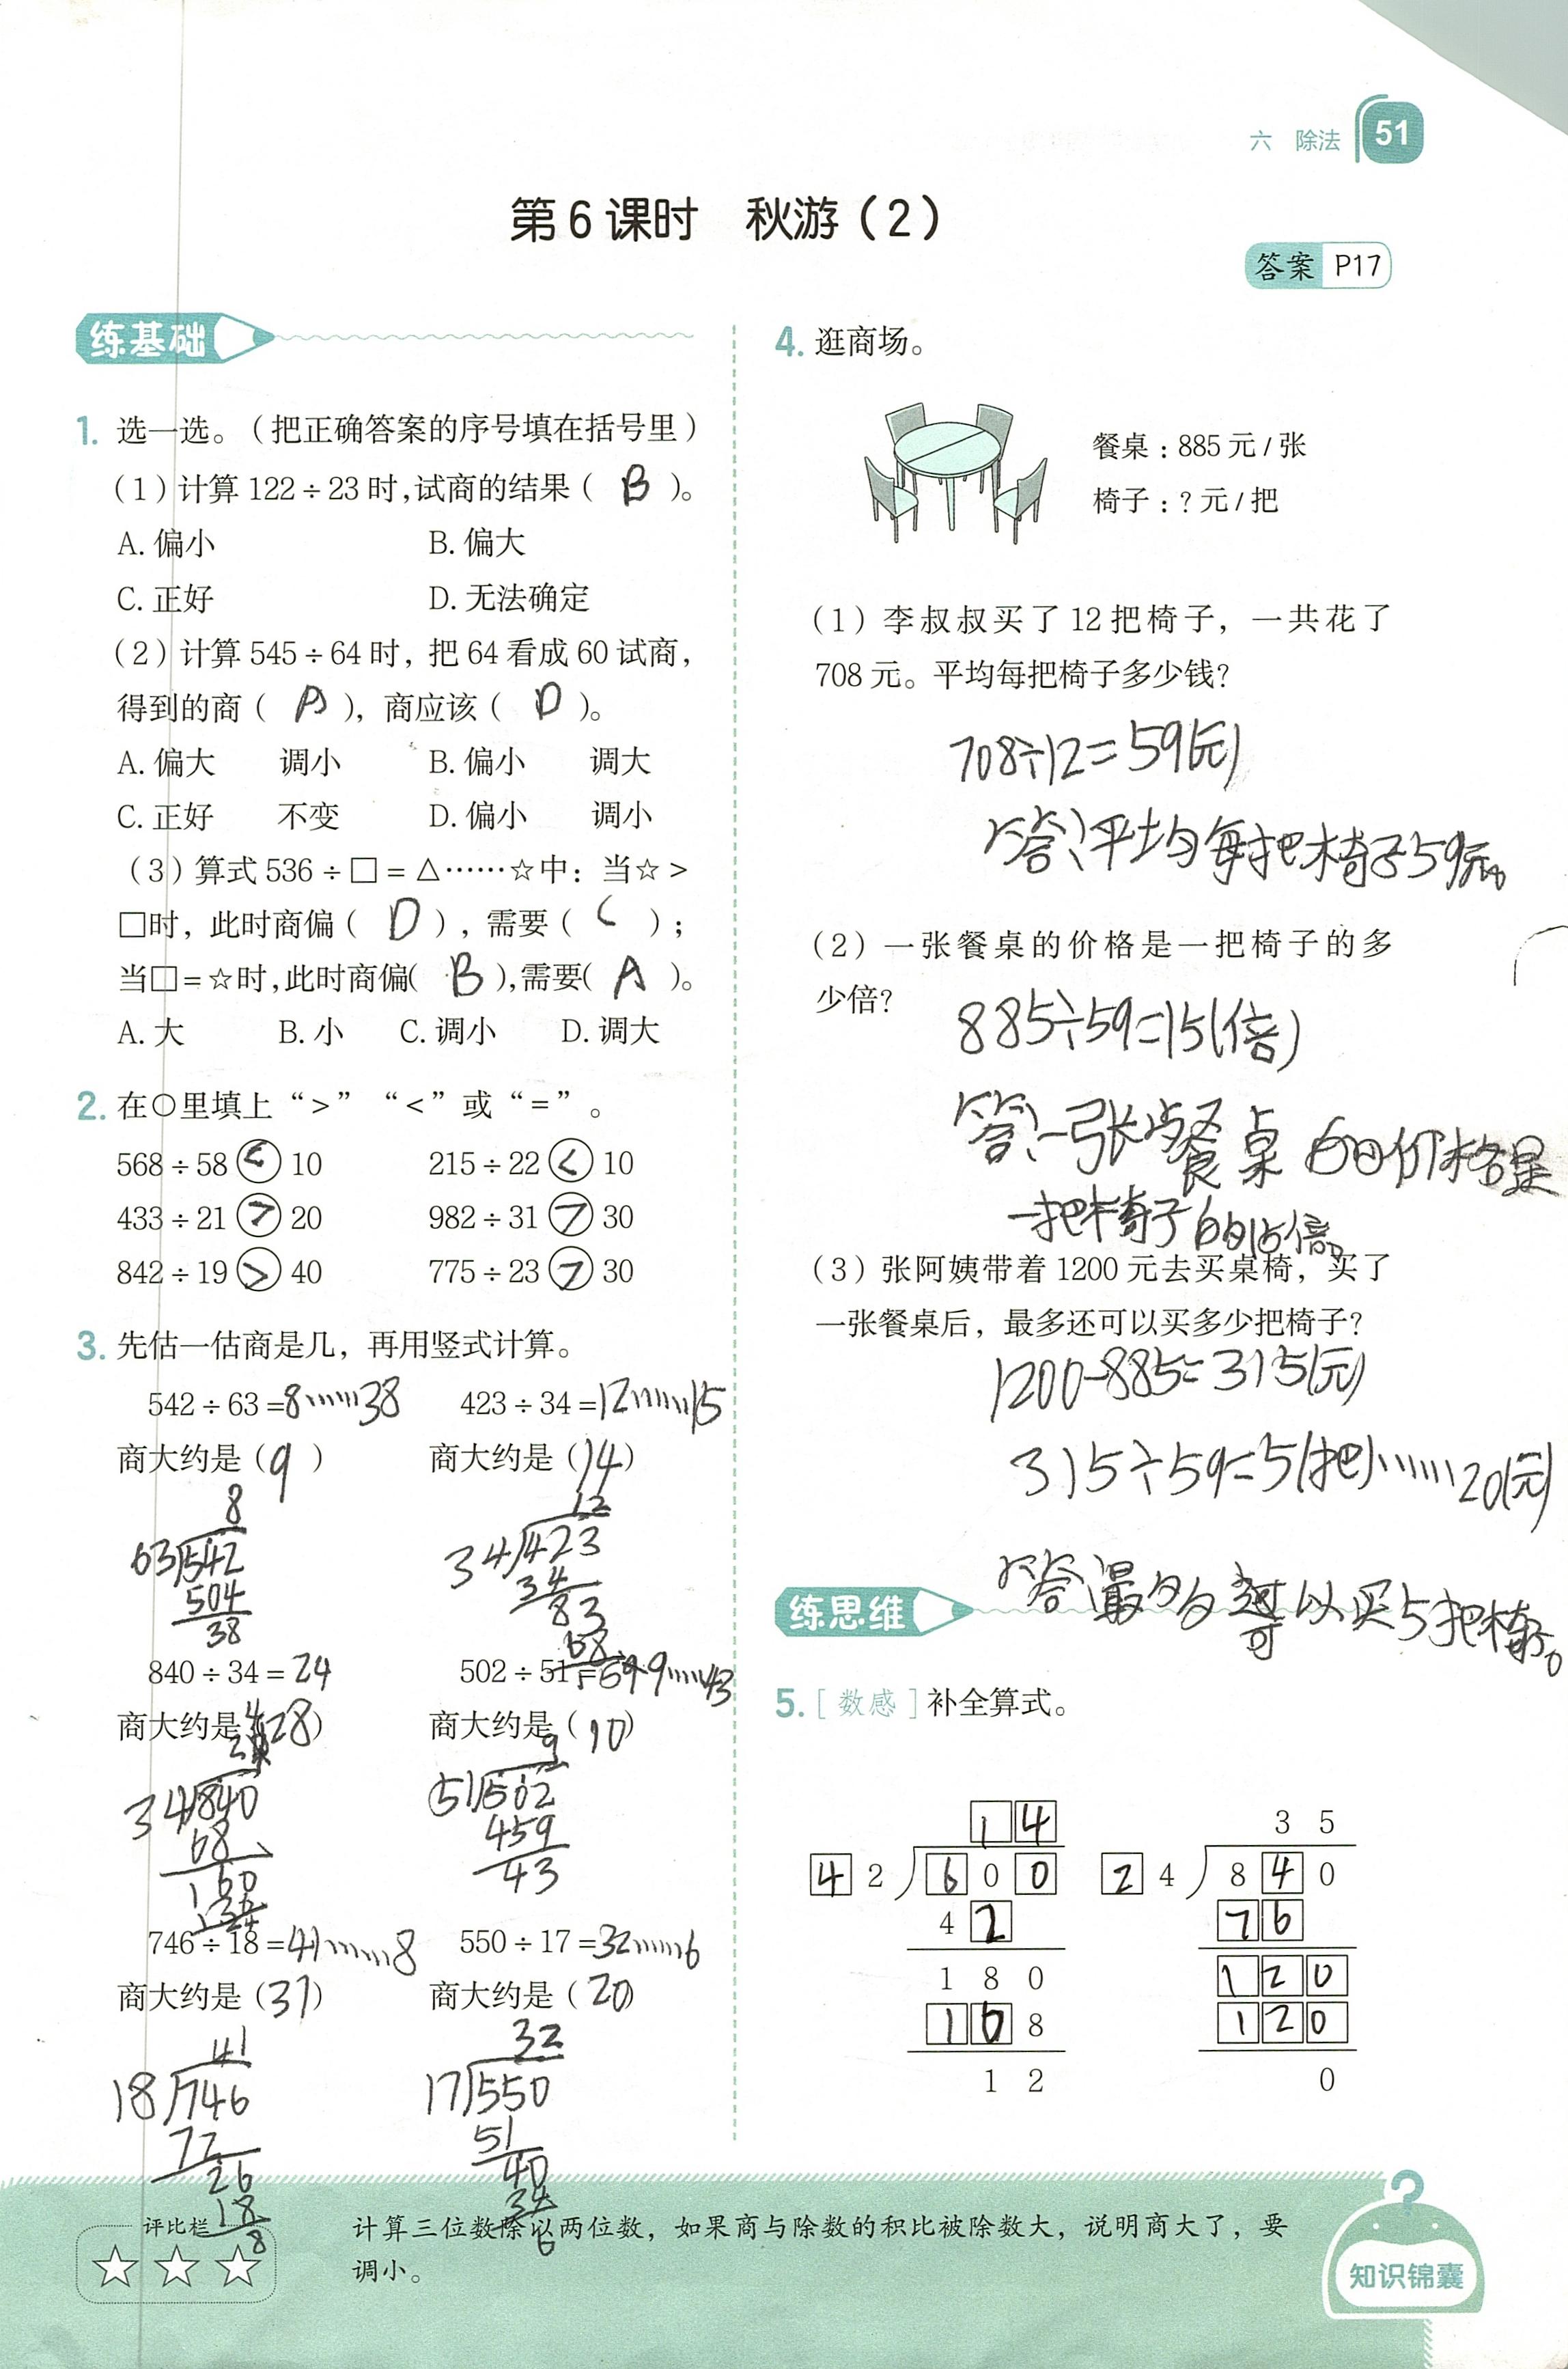 六 除法 51
第6课时 秋游（2）
答案 P17
练基础
1. 选一选。（把正确答案的序号填在括号里）
（1）计算122÷23时,试商的结果（ B ）。
A. 偏小 B. 偏大
C. 正好 D. 无法确定
（2）计算545÷64时，把64看成60试商，
得到的商（ A ），商应该（ D ）。
A. 偏大 调小 B. 偏小 调大
C. 正好 不变 D. 偏小 调小
（3）算式536÷□=△……☆中：当☆>
□时，此时商偏（ D ），需要（ C ）；
当□=☆时,此时商偏( B ),需要( A )。
A. 大 B. 小 C. 调小 D. 调大
2. 在○里填上“>”“<”或“=”。
568÷58 < 10 215÷22 < 10
433÷21 > 20 982÷31 > 30
842÷19 > 40 775÷23 > 30
3. 先估一估商是几，再用竖式计算。
542÷63=8……38 423÷34=12……15
商大约是（9） 商大约是（14）
8 12
63 542 34 423
504 34
38 83
68
840÷34=24 502÷51=9……43
商大约是（28） 商大约是（10）
9
34 840 51 502
68 459
160 43
746÷18=41……8 550÷17=32……6
商大约是（31） 商大约是（20）
41 32
18 746 17 550
72 51
26 40
18 34
8 6
4. 逛商场。
餐桌：885元/张
椅子：?元/把
（1）李叔叔买了12把椅子，一共花了
708元。平均每把椅子多少钱?
708÷12=59(元)
答:平均每把椅子59元。
（2）一张餐桌的价格是一把椅子的多
少倍?
885÷59=15(倍)
答:一张餐桌的价格是
一把椅子的15倍。
（3）张阿姨带着1200元去买桌椅，买了
一张餐桌后，最多还可以买多少把椅子?
1200-885=315(元)
315÷59=5(把)……20(元)
答:最多可以买5把椅子。
练思维
5. [数感]补全算式。
1 4 3 5
4 2 6 0 0 2 4 8 4 0
4 2 7 6
1 8 0 1 2 0
1 6 8 1 2 0
1 2 0
评比栏
计算三位数除以两位数，如果商与除数的积比被除数大，说明商大了，要
调小。
知识锦囊